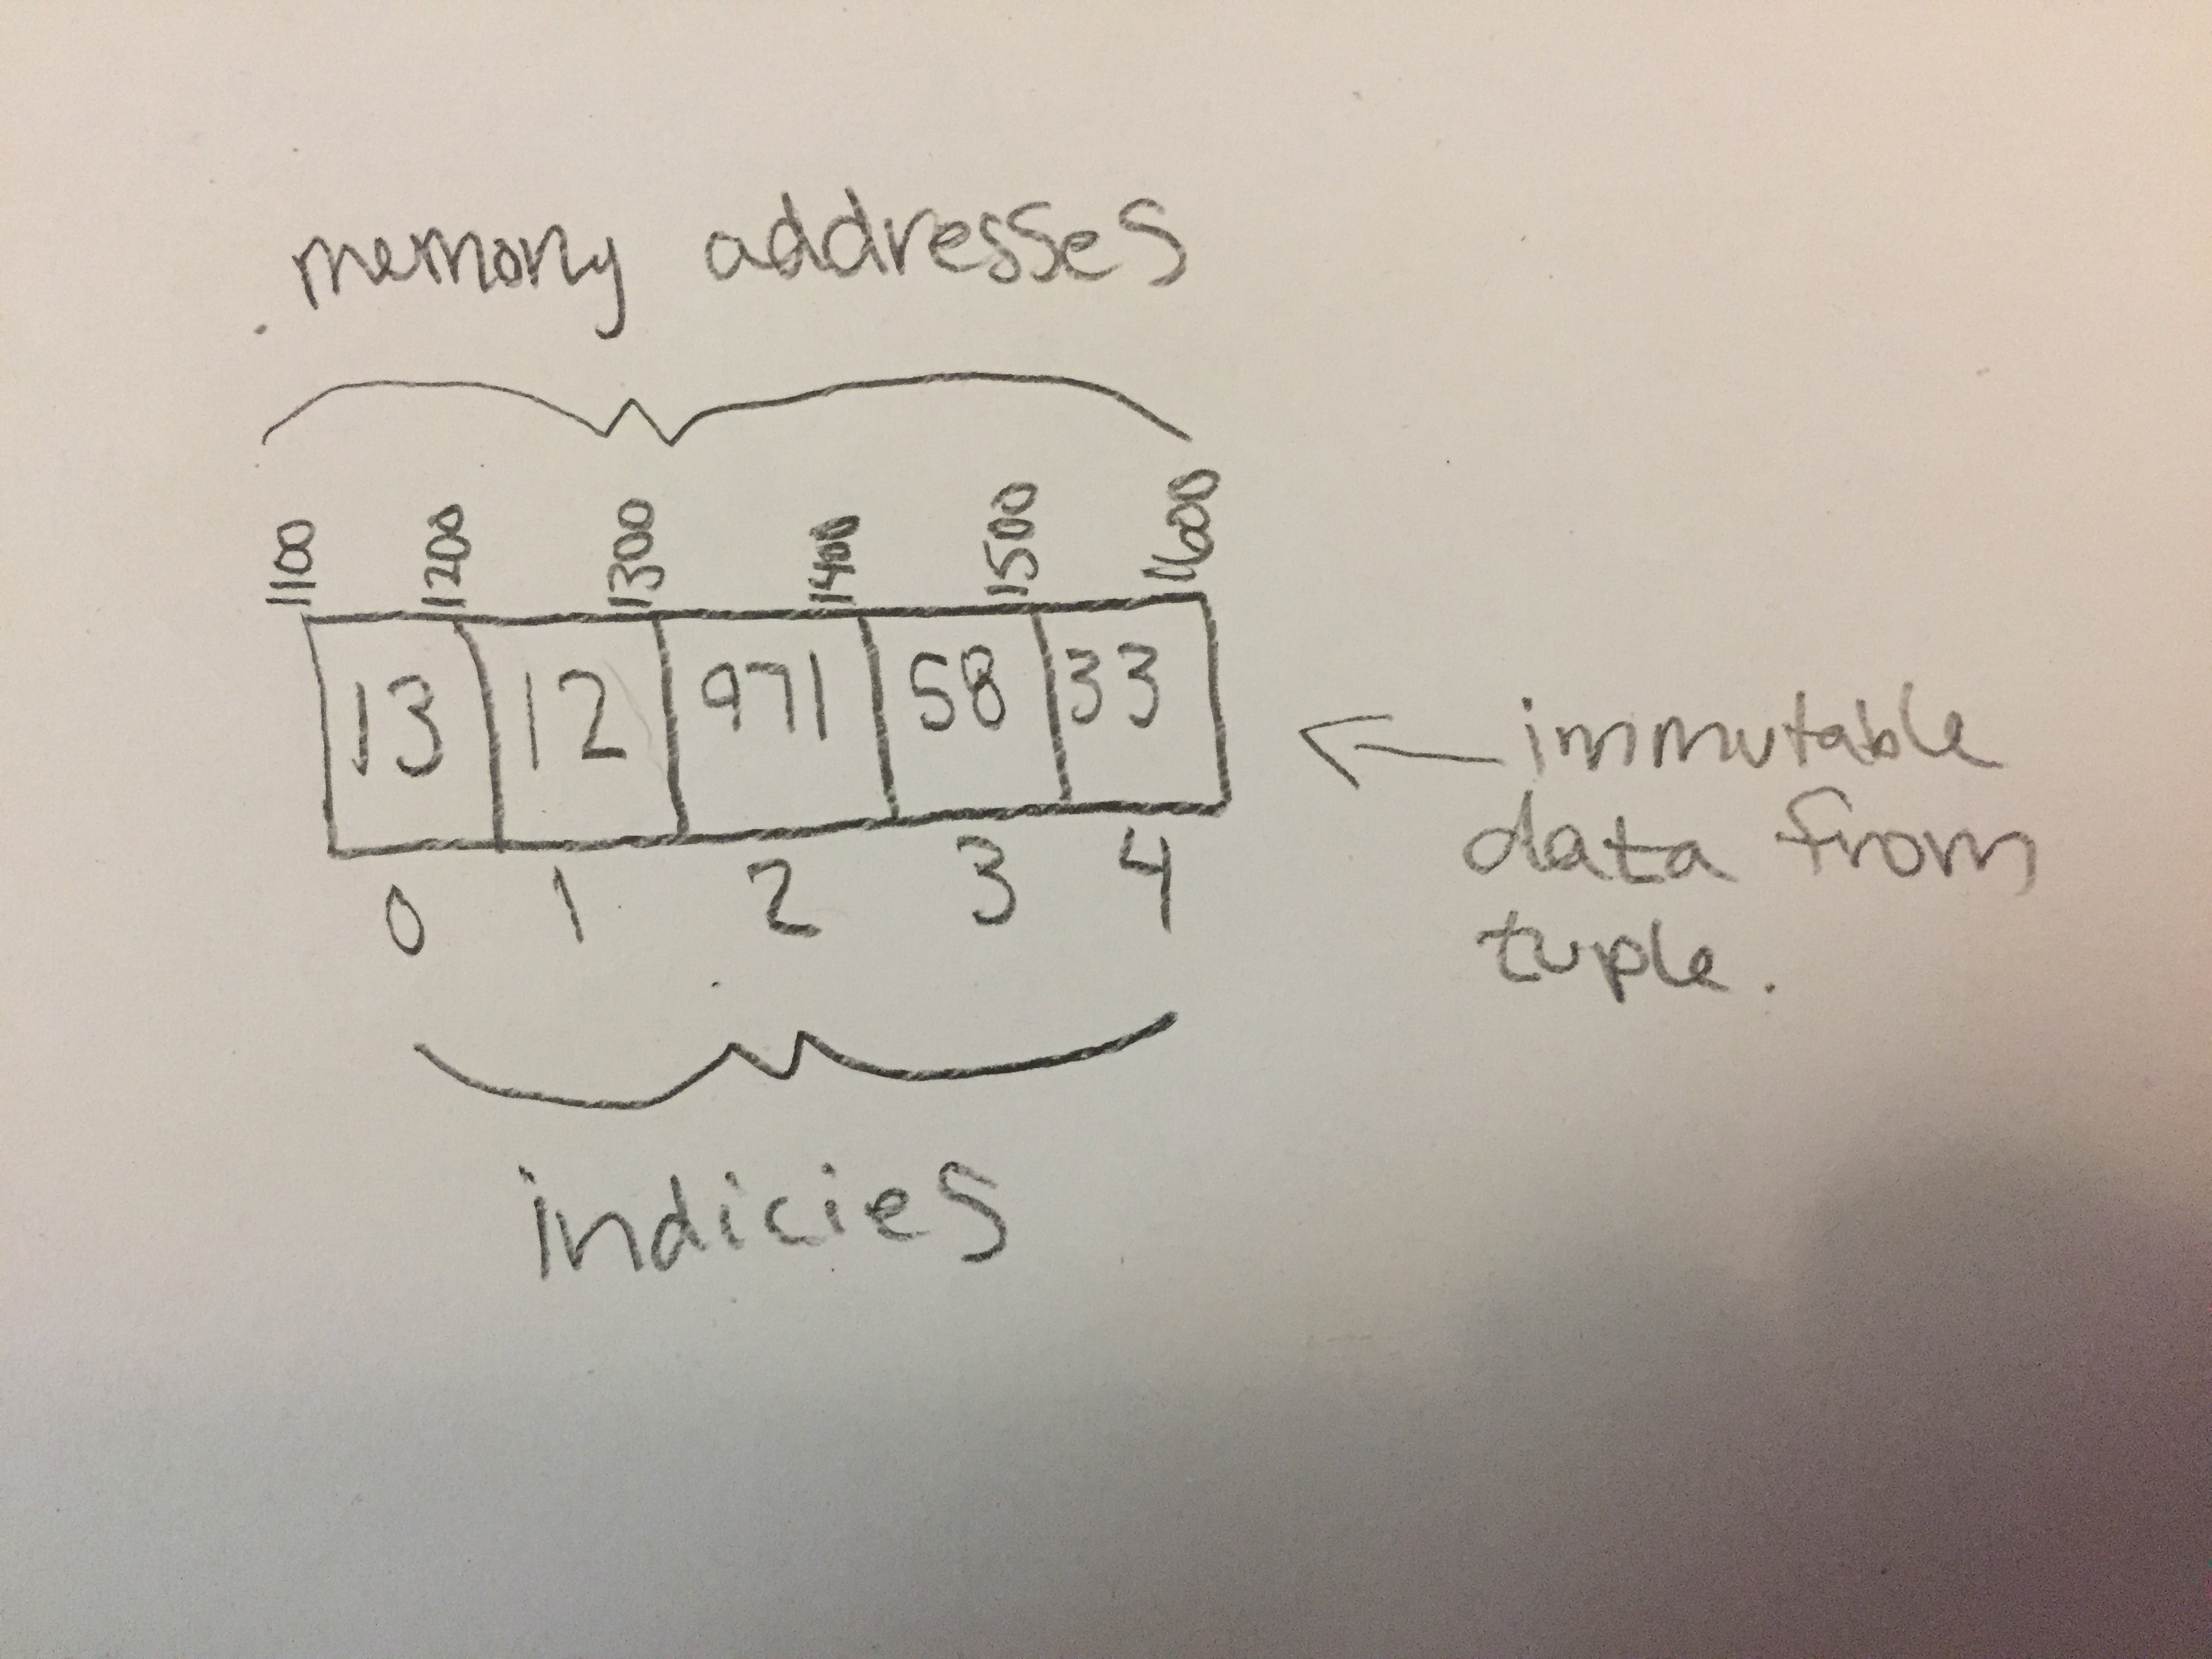 memory addresses
1100 1200 1300 1400 1500 1600
13 12 971 58 33
0 1 2 3 4
immutable
data from
tuple.
indicies